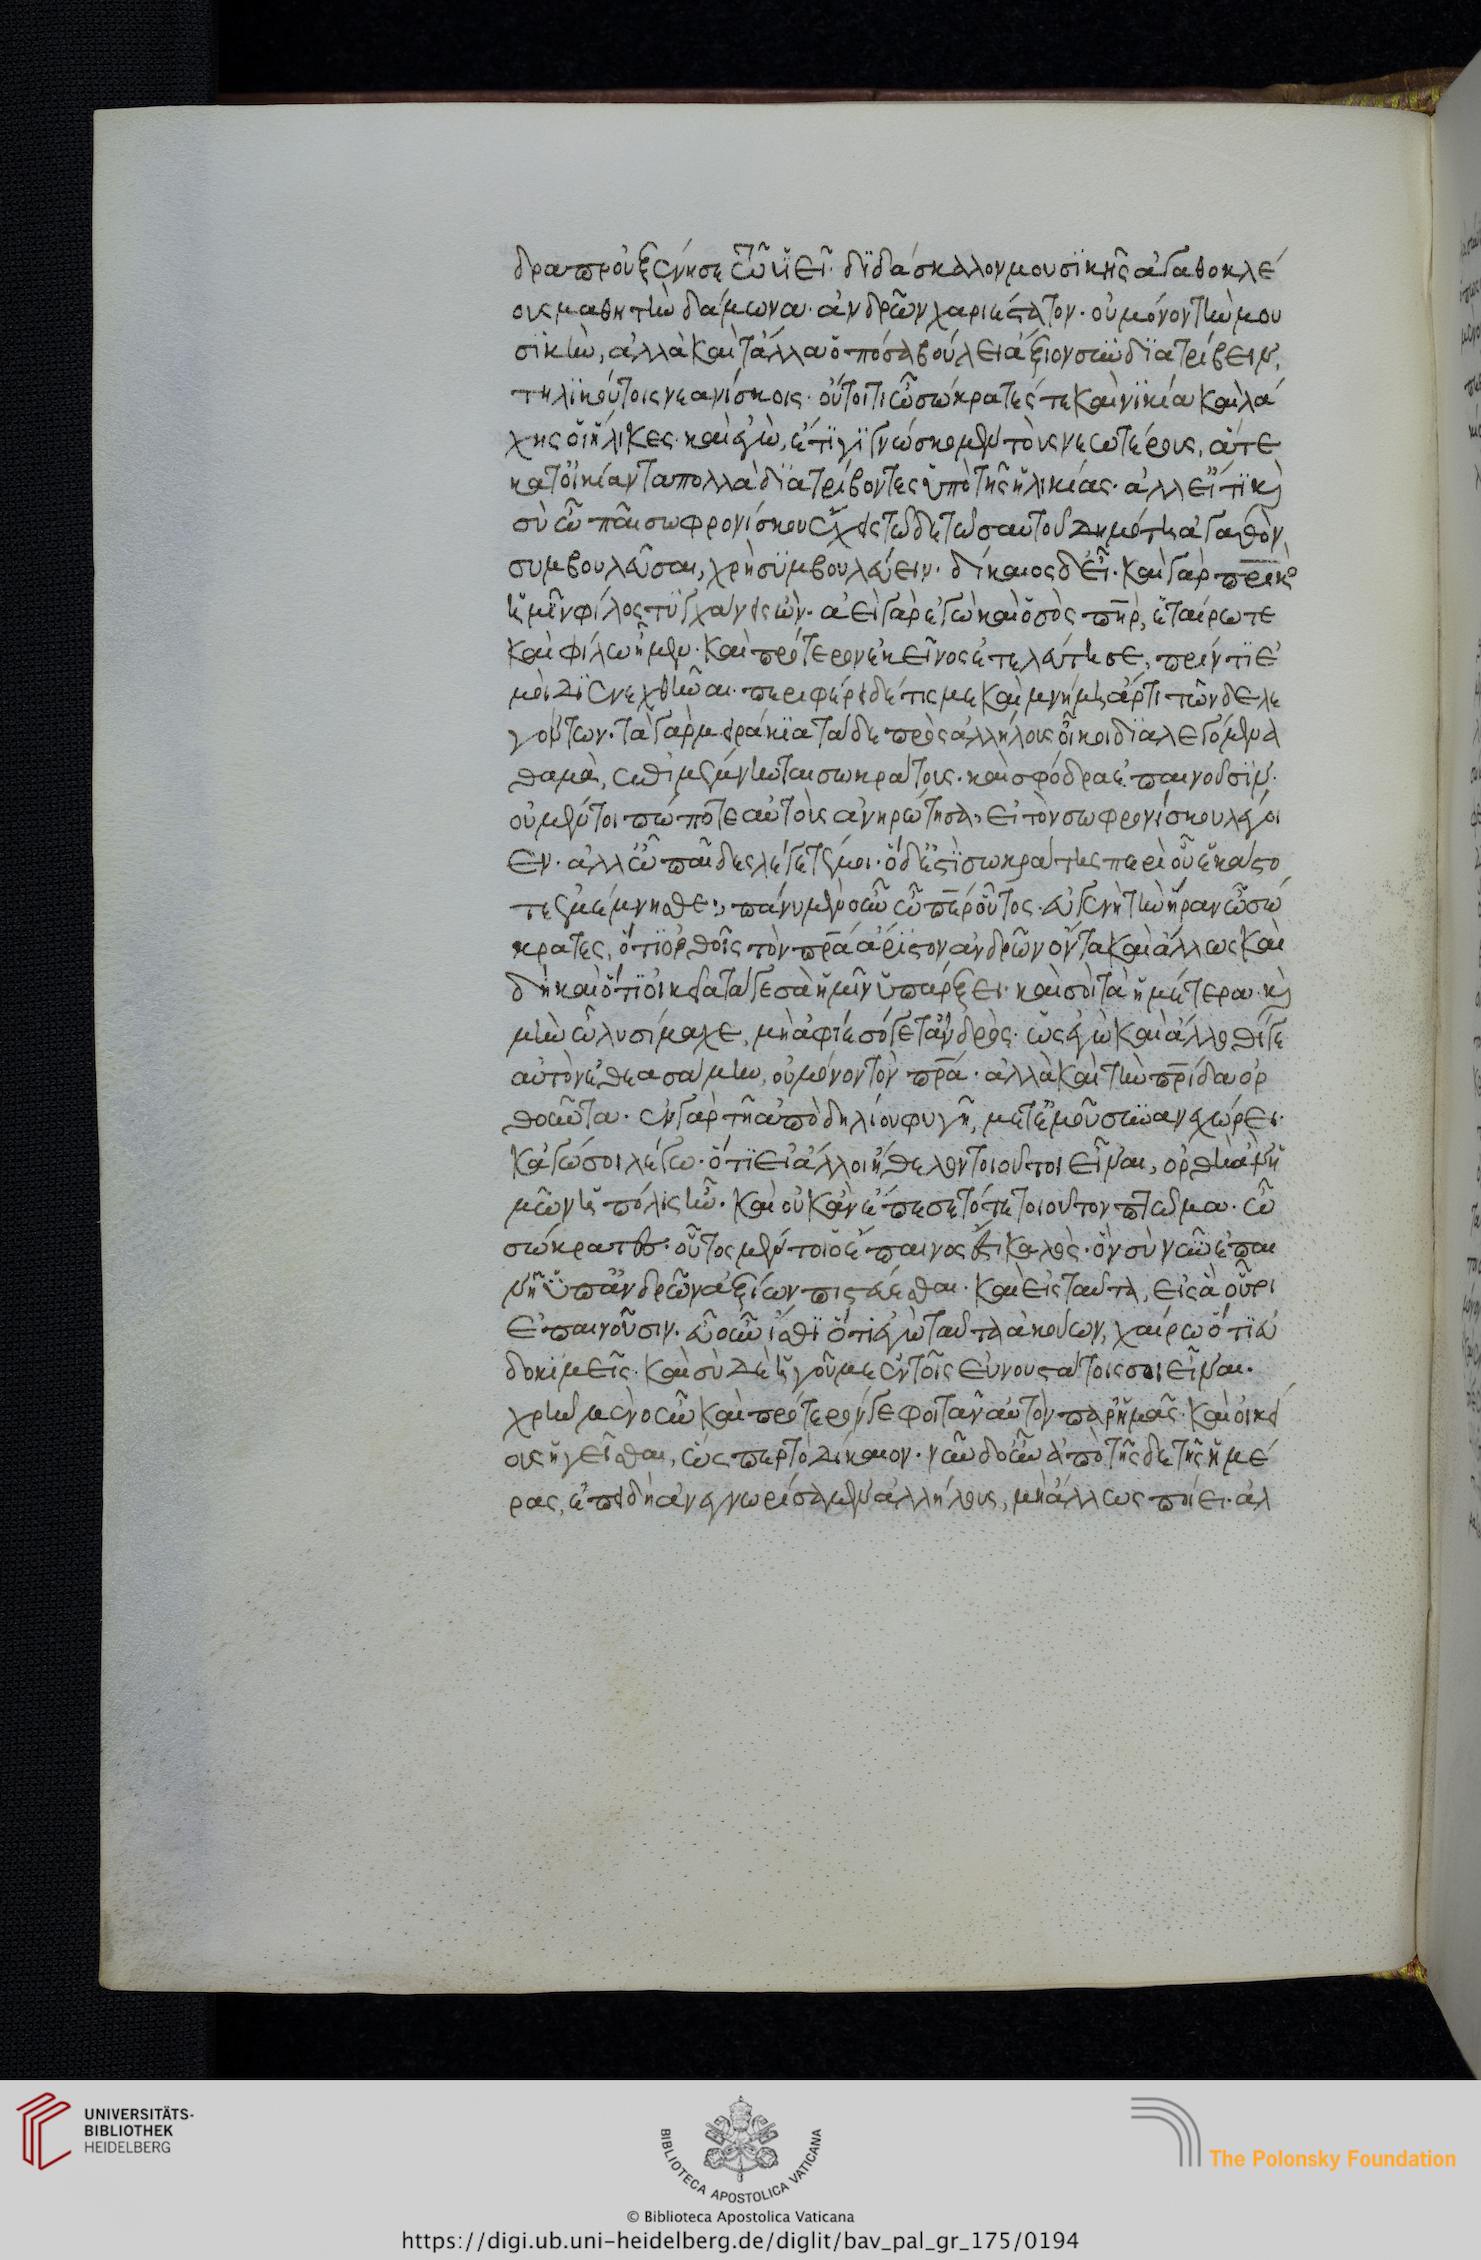 δρα προὐξένησε τῷ ὑ̈εῖ· διδάσκαλον μουσικῆς ἀγαθοκλέ
ους μαθητὴν δάμωνα· ἀνδρῶν χαριέστατον· οὐ μόνον τὴν μου
σικὴν, ἀλλὰ καὶ τἄλλα ὁπόσα βούλει ἄξιον συνδιατρίβειν,
τηλικούτοις νεανίσκοις· οὔτοι τι ὦ σώκρατές τε καὶ νικία καὶ λά
χης οἱ ἥλικες καὶ ἐγὼ, ἔτι γιγνώσκομεν τοὺς νεωτέρους, ἅτε
κατοικίαν τὰ πολλὰ διατρίβοντες ὑπὸ τῆς ἡλικίας· ἀλλ εἴ τι κὶ
σὺ ὦ παῖ σωφρονίσκου ἔχεις τῶδε τῶ σαυτοῦ δημότη ἀγαθὸν
συμβουλεῦσαι, χρὴ συμβουλεύειν· δίκαιος δ εἶ· καὶ γὰρ πρικὸ
ἡμῖν φίλος τυγχάνεις ὢν· ἀεὶ γὰρ ἐγὼ καὶ ὁ σὸς πὴρ, ἑταίρω τε
καὶ φίλω ἦμεν· καὶ πρότερον ἐκεῖνος ἐτελεύτησε, πρίν τι ἐ
μοὶ διενεχθῆναι· περιφέρει δέ τίς με καὶ μνήμη ἄρτι τῶνδε λε
γόντων· τὰ γὰρ μειράκια τάδε πρὸς ἀλλήλους οἴκοι διαλεγόμενα
θαμὰ, ἐπιμέμνηνται σωκράτους· καὶ σφόδρα ἐπαινοῦσιν·
οὐ μέντοι πώποτε αὐτοὺς ἀνηρώτησα, εἰ τὸν σωφρονίσκου λέγοι
εν· ἀλλ ὦ παῖδες λέγετέ μοι· ὅδ ἐστὶ σωκράτης περὶ οὗ ἑκάστο
τε ἐμέμνησθε; πάνυ μὲν οὖν ὦ περ οὗτος· εὖ γε νὴ τὴν ἥραν ὦ σώ
κρατες, ὅτι ὀρθοῖς τὸν πρα ἄριστον ἀνδρῶν ὄντα καὶ ἄλλως καὶ
δὴ καὶ ὅτι οἰκεῖα τά γε σὰ ἡμῖν ὑπάρξει· καὶ σοὶ τὰ ἡμέτερα· κὶ
μὴν ὦ λυσίμαχε, μὴ ἀφίεσό γε τἀνδρός· ὡς ἐγὼ καὶ ἄλλοθί γε
αὐτὸν ἐθεασάμην, οὐ μόνον τὸν πρα· ἀλλὰ καὶ τὴν πρίδα ὀρ
θοῦντα· ἐν γὰρ τῆ ἀπὸ δηλίου φυγῆ, μετ ἐμοῦ συνανεχώρει·
κἀγώ σοι λέγω· ὅτι εἰ ἄλλοι ἤθελον τοιοῦτοι εἶναι, ὀρθὴ ἂν ἡ
μῶν ἡ πόλις ἦν· καὶ οὐκ ἂν ἔπεσε τότε τοιοῦτον πτῶμα· ὦ
σώκρατες· οὗτος μέντοι ὁ ἔπαινός ἐστι καλὸς· ὃν σὺ νῦν ἐπαι
νῆ ὑπ ἀνδρῶν ἀξίων πιστεύεσθαι· καὶ εἰς ταῦτα, εἰς ἃ οὗτοι
ἐπαινοῦσιν· εὖ οὖν ἴσθι ὅτι ἐγὼ ταῦτα ἀκούων, χαίρω ὅτι εὐ
δοκιμεῖς· καὶ σὺ δὲ ἡγοῦ με ἐν τοῖς εὐνουστάτοις σοι εἶναι·
χρῆν μὲν οὖν καὶ πρότερόν γε φοιτᾶν αὐτὸν παρ ἡμᾶς· καὶ οἰκεί
ους ἡγεῖσθαι, ὥσπερ τὸ δίκαιον· νῦν δ οὖν ἀπὸ τῆσδε τῆς ἡμέ
ρας, ἐπειδὴ ἀνεγνωρίσαμεν ἀλλήλους, μὴ ἄλλως ποίει· ἀλ
UNIVERSITÄTS-
BIBLIOTHEK
HEIDELBERG
BIBLIOTECA APOSTOLICA VATICANA
The Polonsky Foundation
© Biblioteca Apostolica Vaticana
https://digi.ub.uni-heidelberg.de/diglit/bav_pal_gr_175/0194